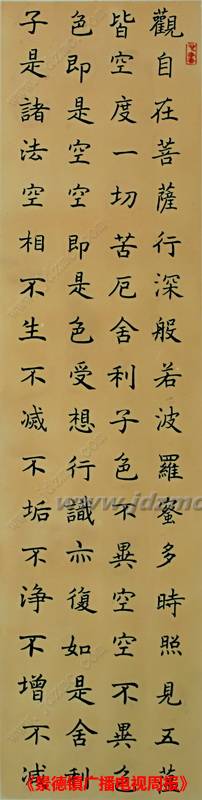 觀自在菩薩行深般若波羅蜜多時照見五
皆空度一切苦厄舍利子色不異空空不異色
色即是空空即是色受想行識亦復如是舍利
子是諸法空相不生不滅不垢不净不增不减
www.jdzmc
《景德镇广播电视周报》